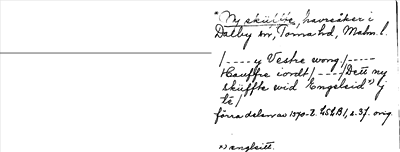 *Ny skütte, havreåker i
Dalby sn, Torna hd, Malm. l.
/---- y Vestre wong /----
Hauffre iordt /----/ Dett ny
skütte wid Engeleid x) j
te/
förra delen av 1570-t. LSLB1, s. 37. orig.
x) ängleitt.